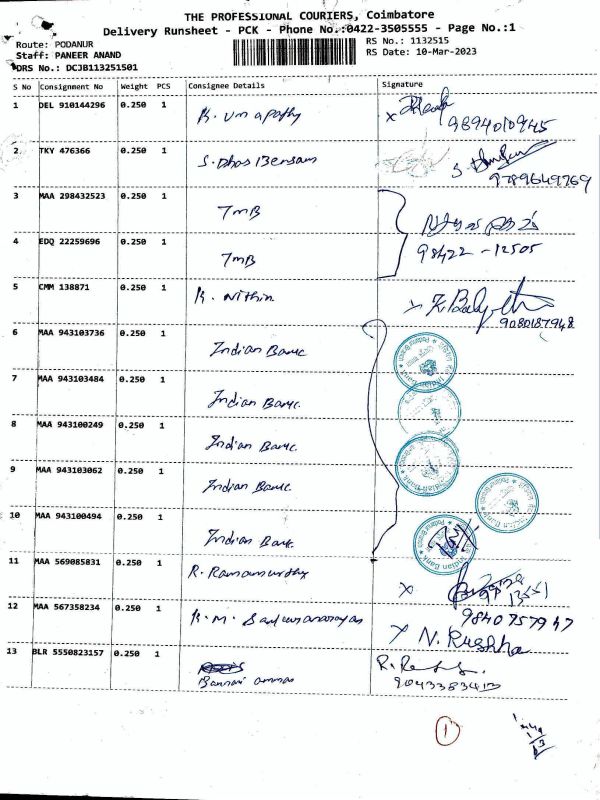 THE PROFESSIONAL COURIERS, Coimbatore
Delivery Runsheet - PCK - Phone No.:0422-3505555 - Page No.:1
Route: PODANUR
RS No.: 1132515
Staff: PANEER ANAND
RS Date: 10-Mar-2023
DRS No.: DCJB113251501
S No Consignment No Weight PCS Consignee Details Signature
1 DEL 910144296 0.250 1 K. Umapathy
9894010945
2 TKY 476366 0.250 1 S.
9789649769
3 MAA 298432523 0.250 1 TMB
4 EDQ 22259696 0.250 1 TMB
98422-12505
5 CMM 138871 0.250 1 K. Nithin
9080187948
6 MAA 943103736 0.250 1 Indian Bank
7 MAA 943103484 0.250 1 Indian Bank
8 MAA 943100249 0.250 1 Indian Bank
9 MAA 943103062 0.250 1 Indian Bank
10 MAA 943100494 0.250 1 Indian Bank
11 MAA 569085831 0.250 1 R. Ramamurthy
12 MAA 567358234 0.250 1 K.M.
9840757947
13 BLR 5550823157 0.250 1 Bannari amman
9043383413
1